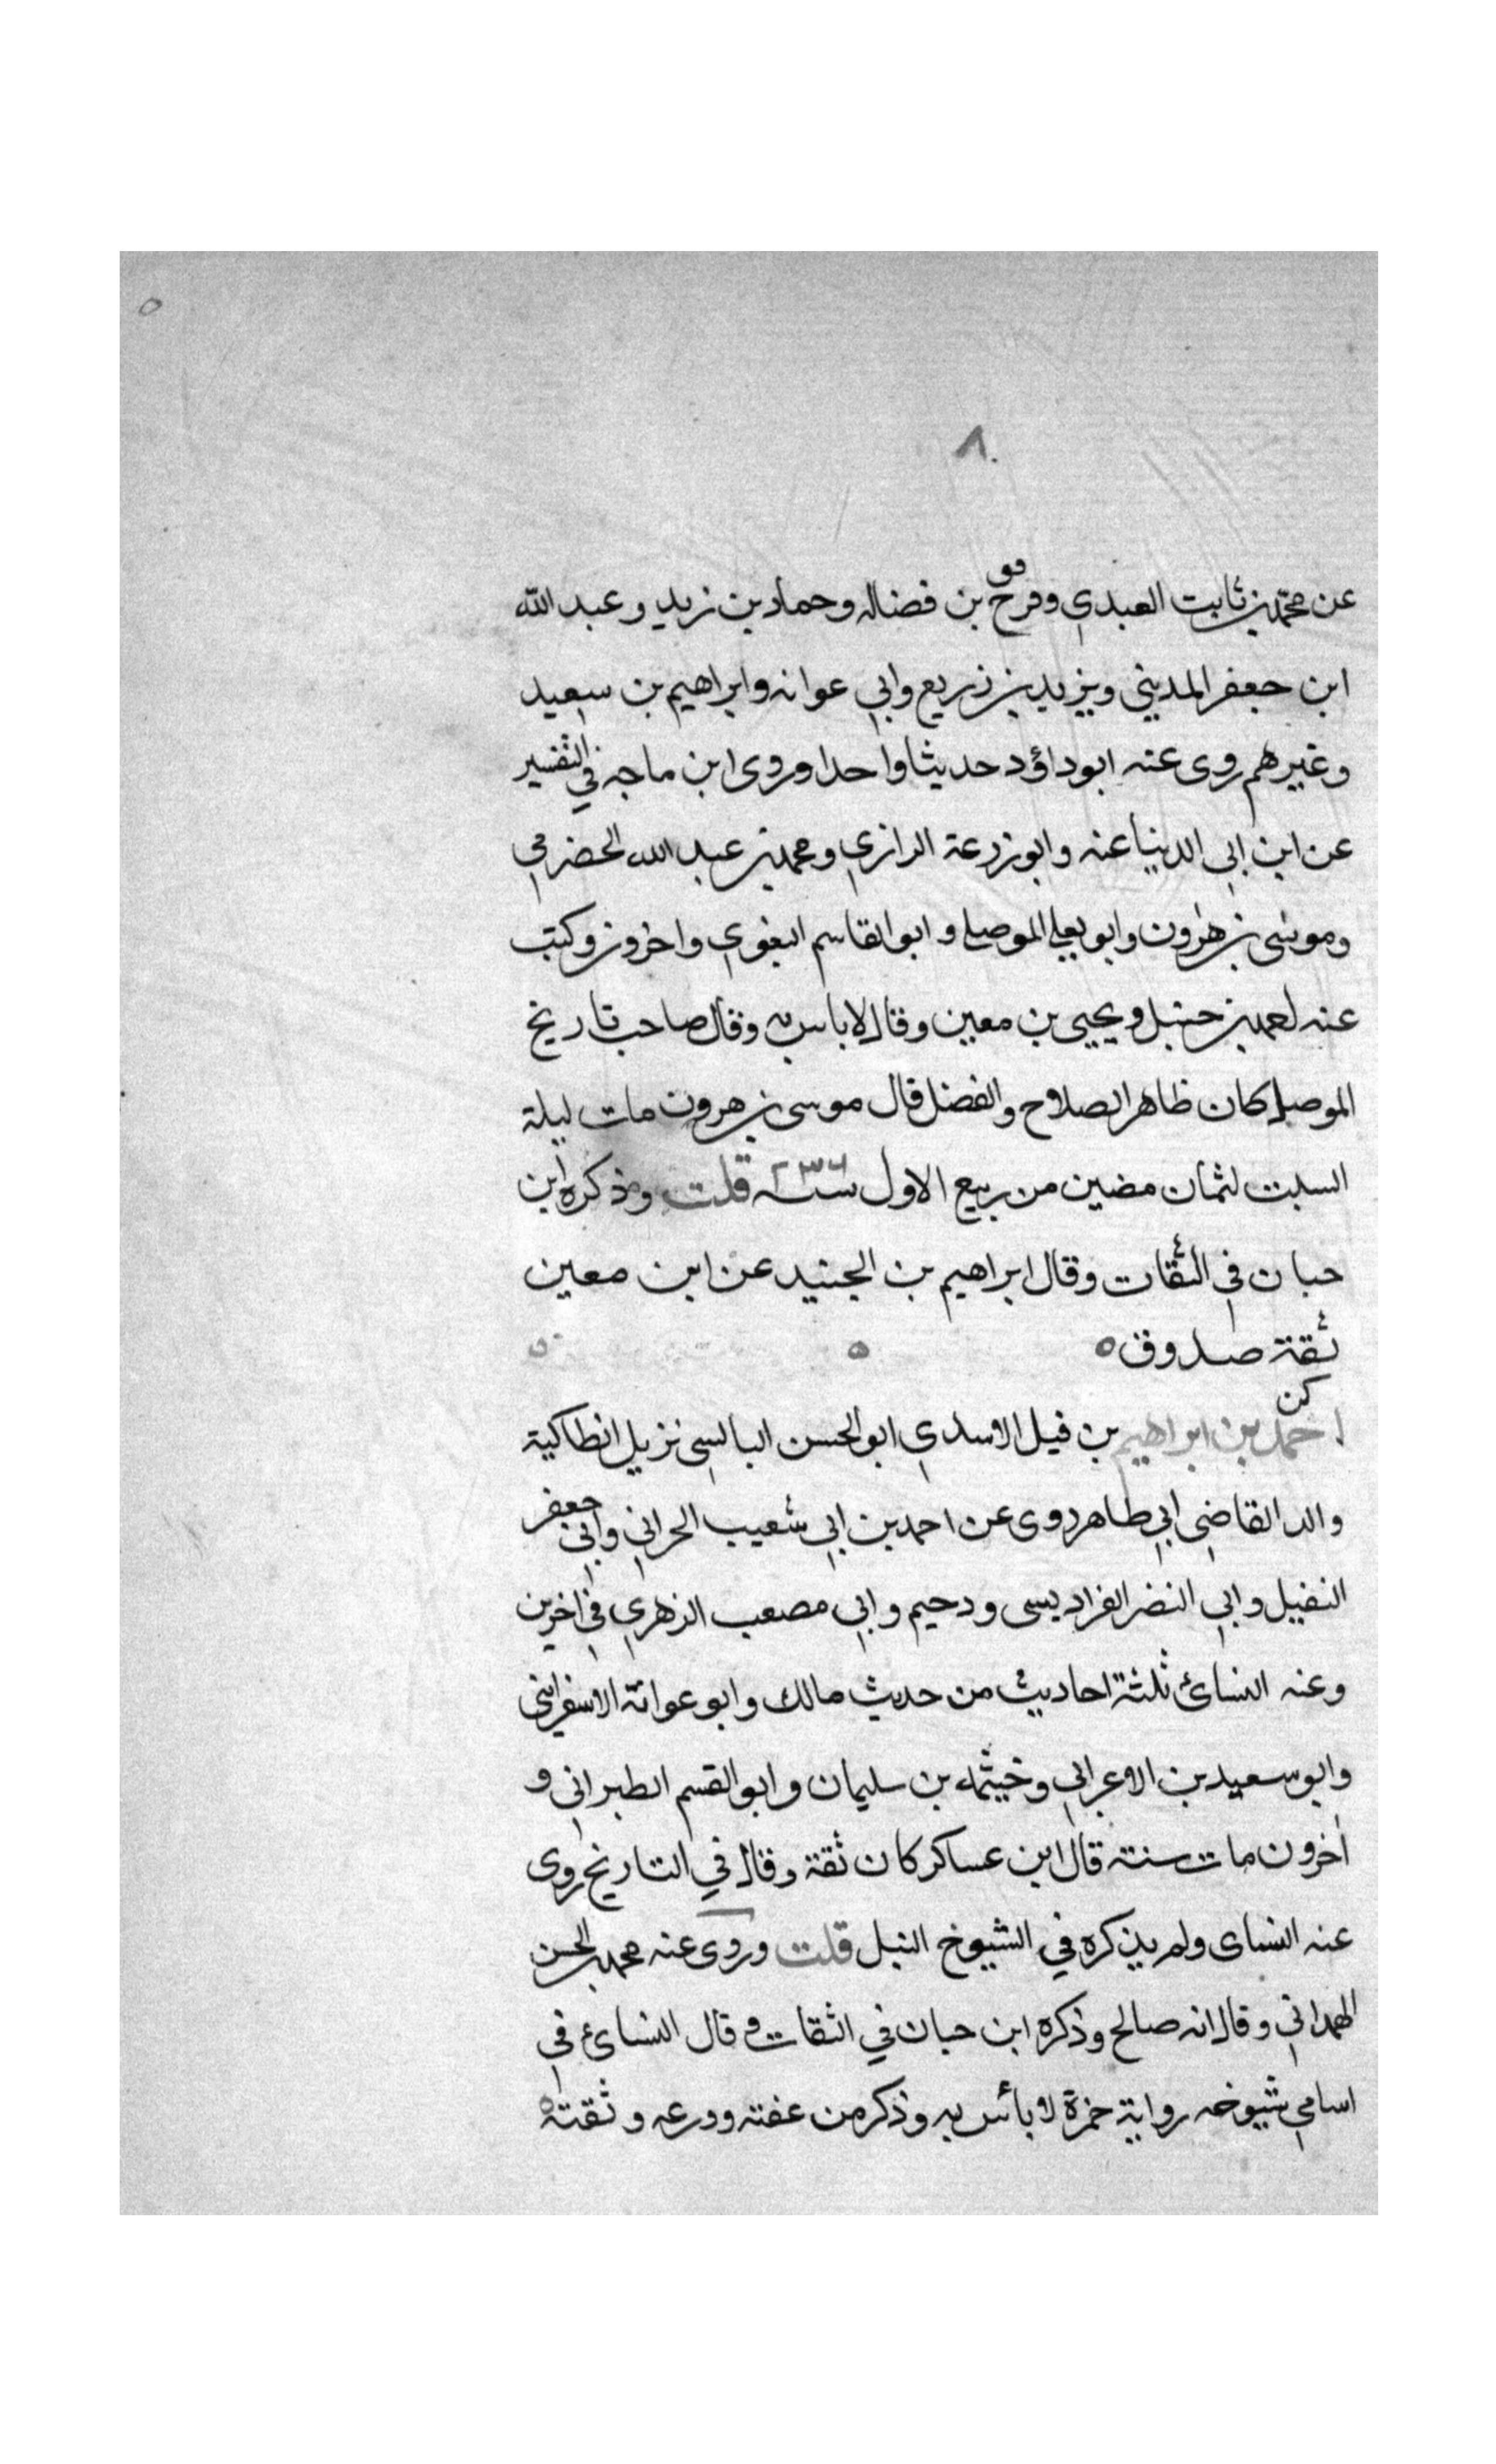 ٨
عن محمد بن ثابت العبدي وفرج بن فضاله وحماد بن زيد وعبد الله
ابن جعفر المديني ويزيد بن زريع وابي عوانه وابراهيم بن سعيد
وغيرهم روى عنه ابوداؤد حديثا واحدا وروى ابن ماجه في التفسير
عن ابن ابي الدنيا عنه وابو زرعة الرازي ومحمد بن عبد الله الحضرمي
وموسى بن هرون وابو يعلى الموصلي وابو القاسم البغوي واخرون وكتب
عنه احمد بن حنبل ويحيى بن معين وقال لا باس به وقال صاحب تاريخ
الموصل كان ظاهر الصلاح والفضل قال موسى بن هرون مات ليلة
السبت لثمان مضين من ربيع الاول سنة ٢٣٦ قلت وذكره ابن
حبان في الثقات وقال ابراهيم بن الجنيد عن ابن معين
ثقة صدوق
كن
احمد بن ابراهيم بن فيل الاسدي ابو الحسن البالسي نزيل انطاكية
والد القاضي ابي طاهر روى عن احمد بن ابي شعيب الحراني وابي جعفر
النفيل وابي النضر الفراديسى ودحيم وابي مصعب الزهري في اخرين
وعنه النسائ ثلثة احاديث من حديث مالك وابو عوانة الاسفرايني
وابو سعيد بن الاعرابي وخيثمه بن سليمان وابو القسم الطبراني و
اخرون مات سنة قال ابن عساكر كان ثقة وقال في التاريخ روى
عنه النساى ولم يذكره في الشيوخ النبل قلت وروى عنه محمد بن الحسن
الهمداني وقال انه صالح وذكره ابن حبان في الثقات وقال النسائ في
اسامي شيوخه رواية حمزة لا بأس به وذكر من عفته وورعه وثقته